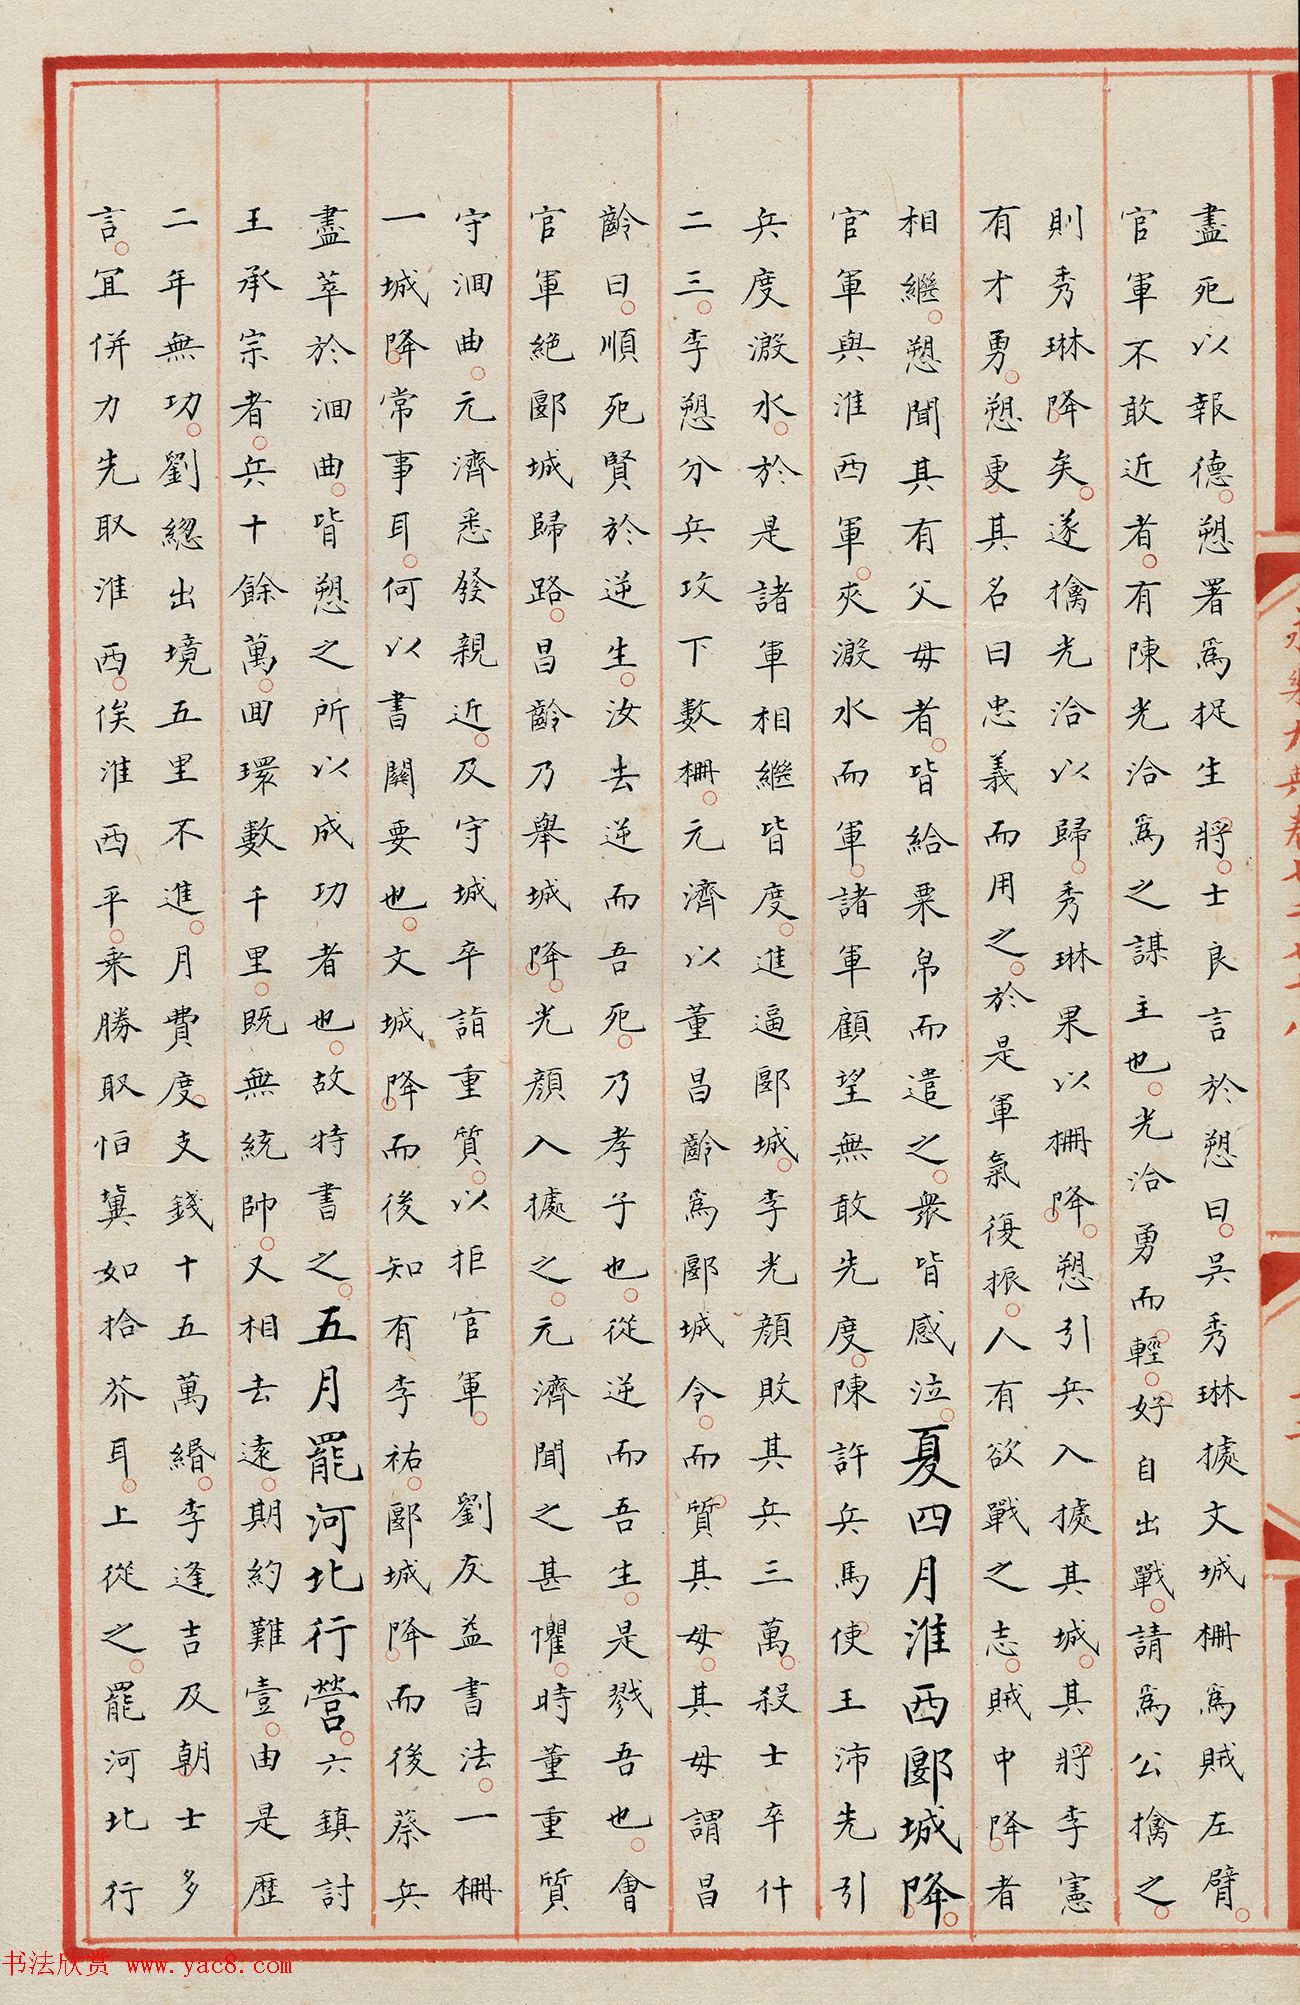 盡死以報德愬署爲捉生將士良言於愬曰吳秀琳據文城柵爲賊左臂
官軍不敢近者有陳光洽爲之謀主也光洽勇而輕好自出戰請爲公擒之
則秀琳降矣遂擒光洽以歸秀琳果以柵降愬引兵入據其城其將李憲
有才勇愬更其名曰忠義而用之於是軍氣復振人有欲戰之志賊中降者
相繼愬聞其有父母者皆給粟帛而遣之衆皆感泣夏四月淮西郾城降
官軍與淮西軍夾溵水而軍諸軍顧望無敢先度陳許兵馬使王沛先引
兵度溵水於是諸軍相繼皆度進逼郾城李光顔敗其兵三萬殺士卒什
二三李愬分兵攻下數柵元濟以董昌齡爲郾城令而質其母其母謂昌
齡曰順死賢於逆生汝去逆而吾死乃孝子也從逆而吾生是戮吾也會
官軍絶郾城歸路昌齡乃舉城降光顔入據之元濟聞之甚懼時董重質
守洄曲元濟悉發親近及守城卒詣重質以拒官軍 劉友益書法一柵
一城降常事耳何以書關要也文城降而後知有李祐郾城降而後蔡兵
盡萃於洄曲皆愬之所以成功者也故特書之五月罷河北行營六鎮討
王承宗者兵十餘萬回環數千里既無統帥又相去遠期約難壹由是歷
二年無功劉總出境五里不進月費度支錢十五萬緡李逢吉及朝士多
言宜併力先取淮西俟淮西平乘勝取恒冀如拾芥耳上從之罷河北行
书法欣赏 www.yac8.com